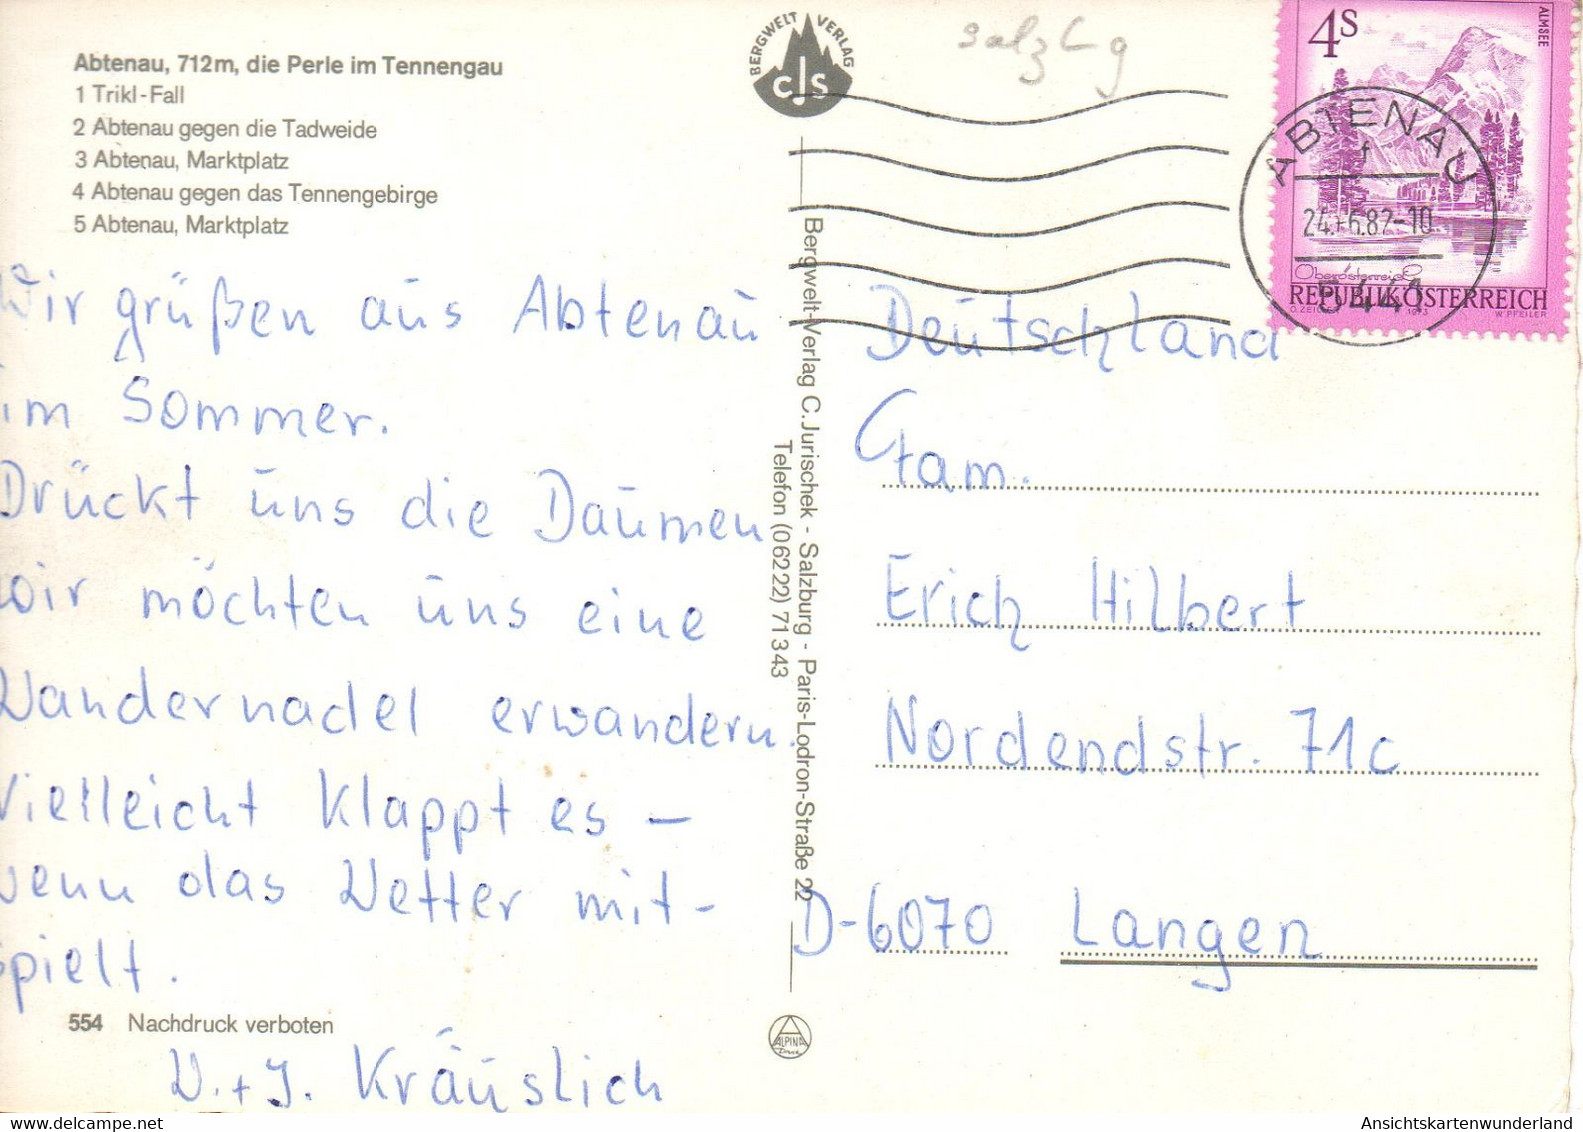 Abtenau, 712m, die Perle im Tennengau
1 Trikl-Fall
2 Abtenau gegen die Tadweide
3 Abtenau, Marktplatz
4 Abtenau gegen das Tennengebirge
5 Abtenau, Marktplatz
Wir grüßen aus Abtenau
im Sommer.
Drückt uns die Daumen
wir möchten uns eine
Wandernadel erwandern.
Vielleicht klappt es –
wenn das Wetter mit-
spielt.
554 Nachdruck verboten
W. + J. Kräuslich
BERGWELT VERLAG
CJS
Bergwelt-Verlag C.Jurischek - Salzburg - Paris-Lodron-Straße 22
Telefon (06222) 71343
ALPINA
Salzbg
4S
ALMSEE
Oberösterreich
REPUBLIK ÖSTERREICH
1973
W. PFEILER
ABTENAU
f
24.-6.82-10
5441
Deutschland
Fam.
Erich Hilbert
Nordendstr. 71c
D-6070 Langen
AnsichtskartenwunderIand